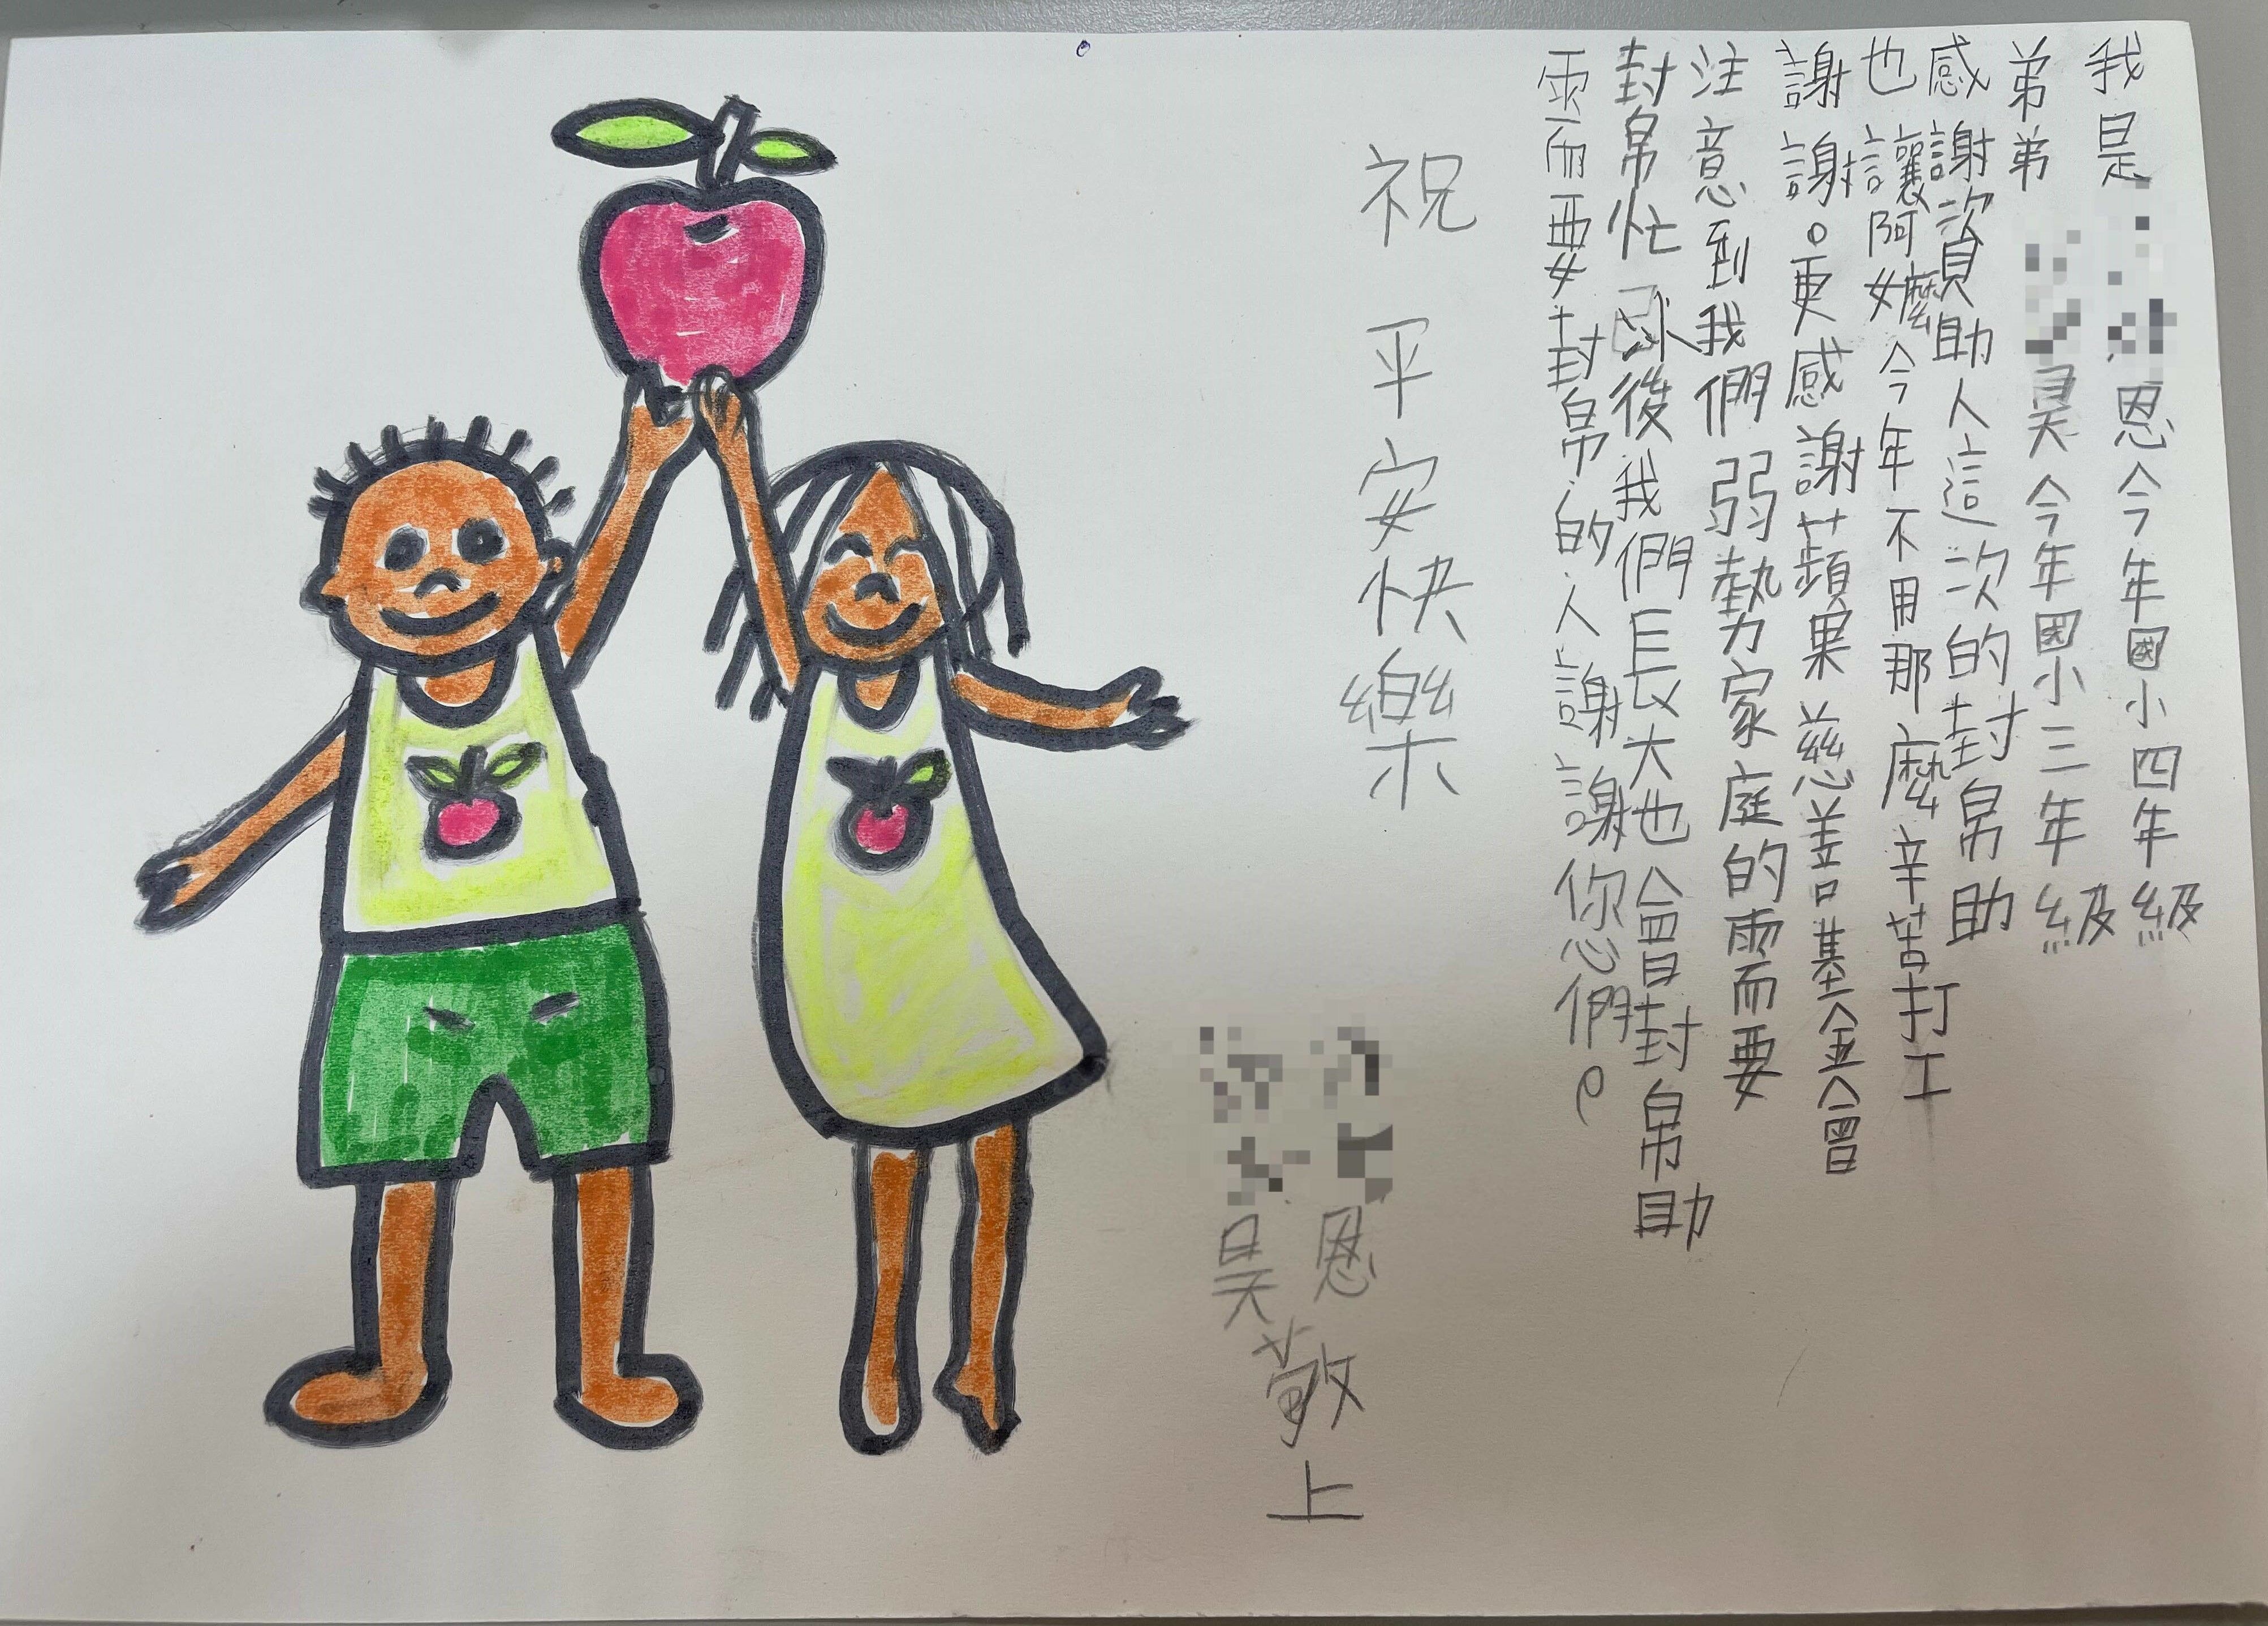 我是恩今年國小四年級
弟弟昊今年國小三年級
感謝資助人這次的幫助
也讓阿嬤今年不用那麼辛苦打工
謝謝。更感謝蘋果慈善基金會
注意到我們弱勢家庭的需要
幫忙後我們長大也會幫助
需要幫的人謝謝您們。
祝 平安快樂
恩
昊
敬上